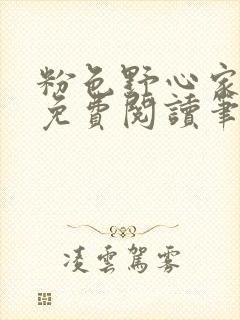 粉色野心家
免費閱讀筆
凌雲駕霧